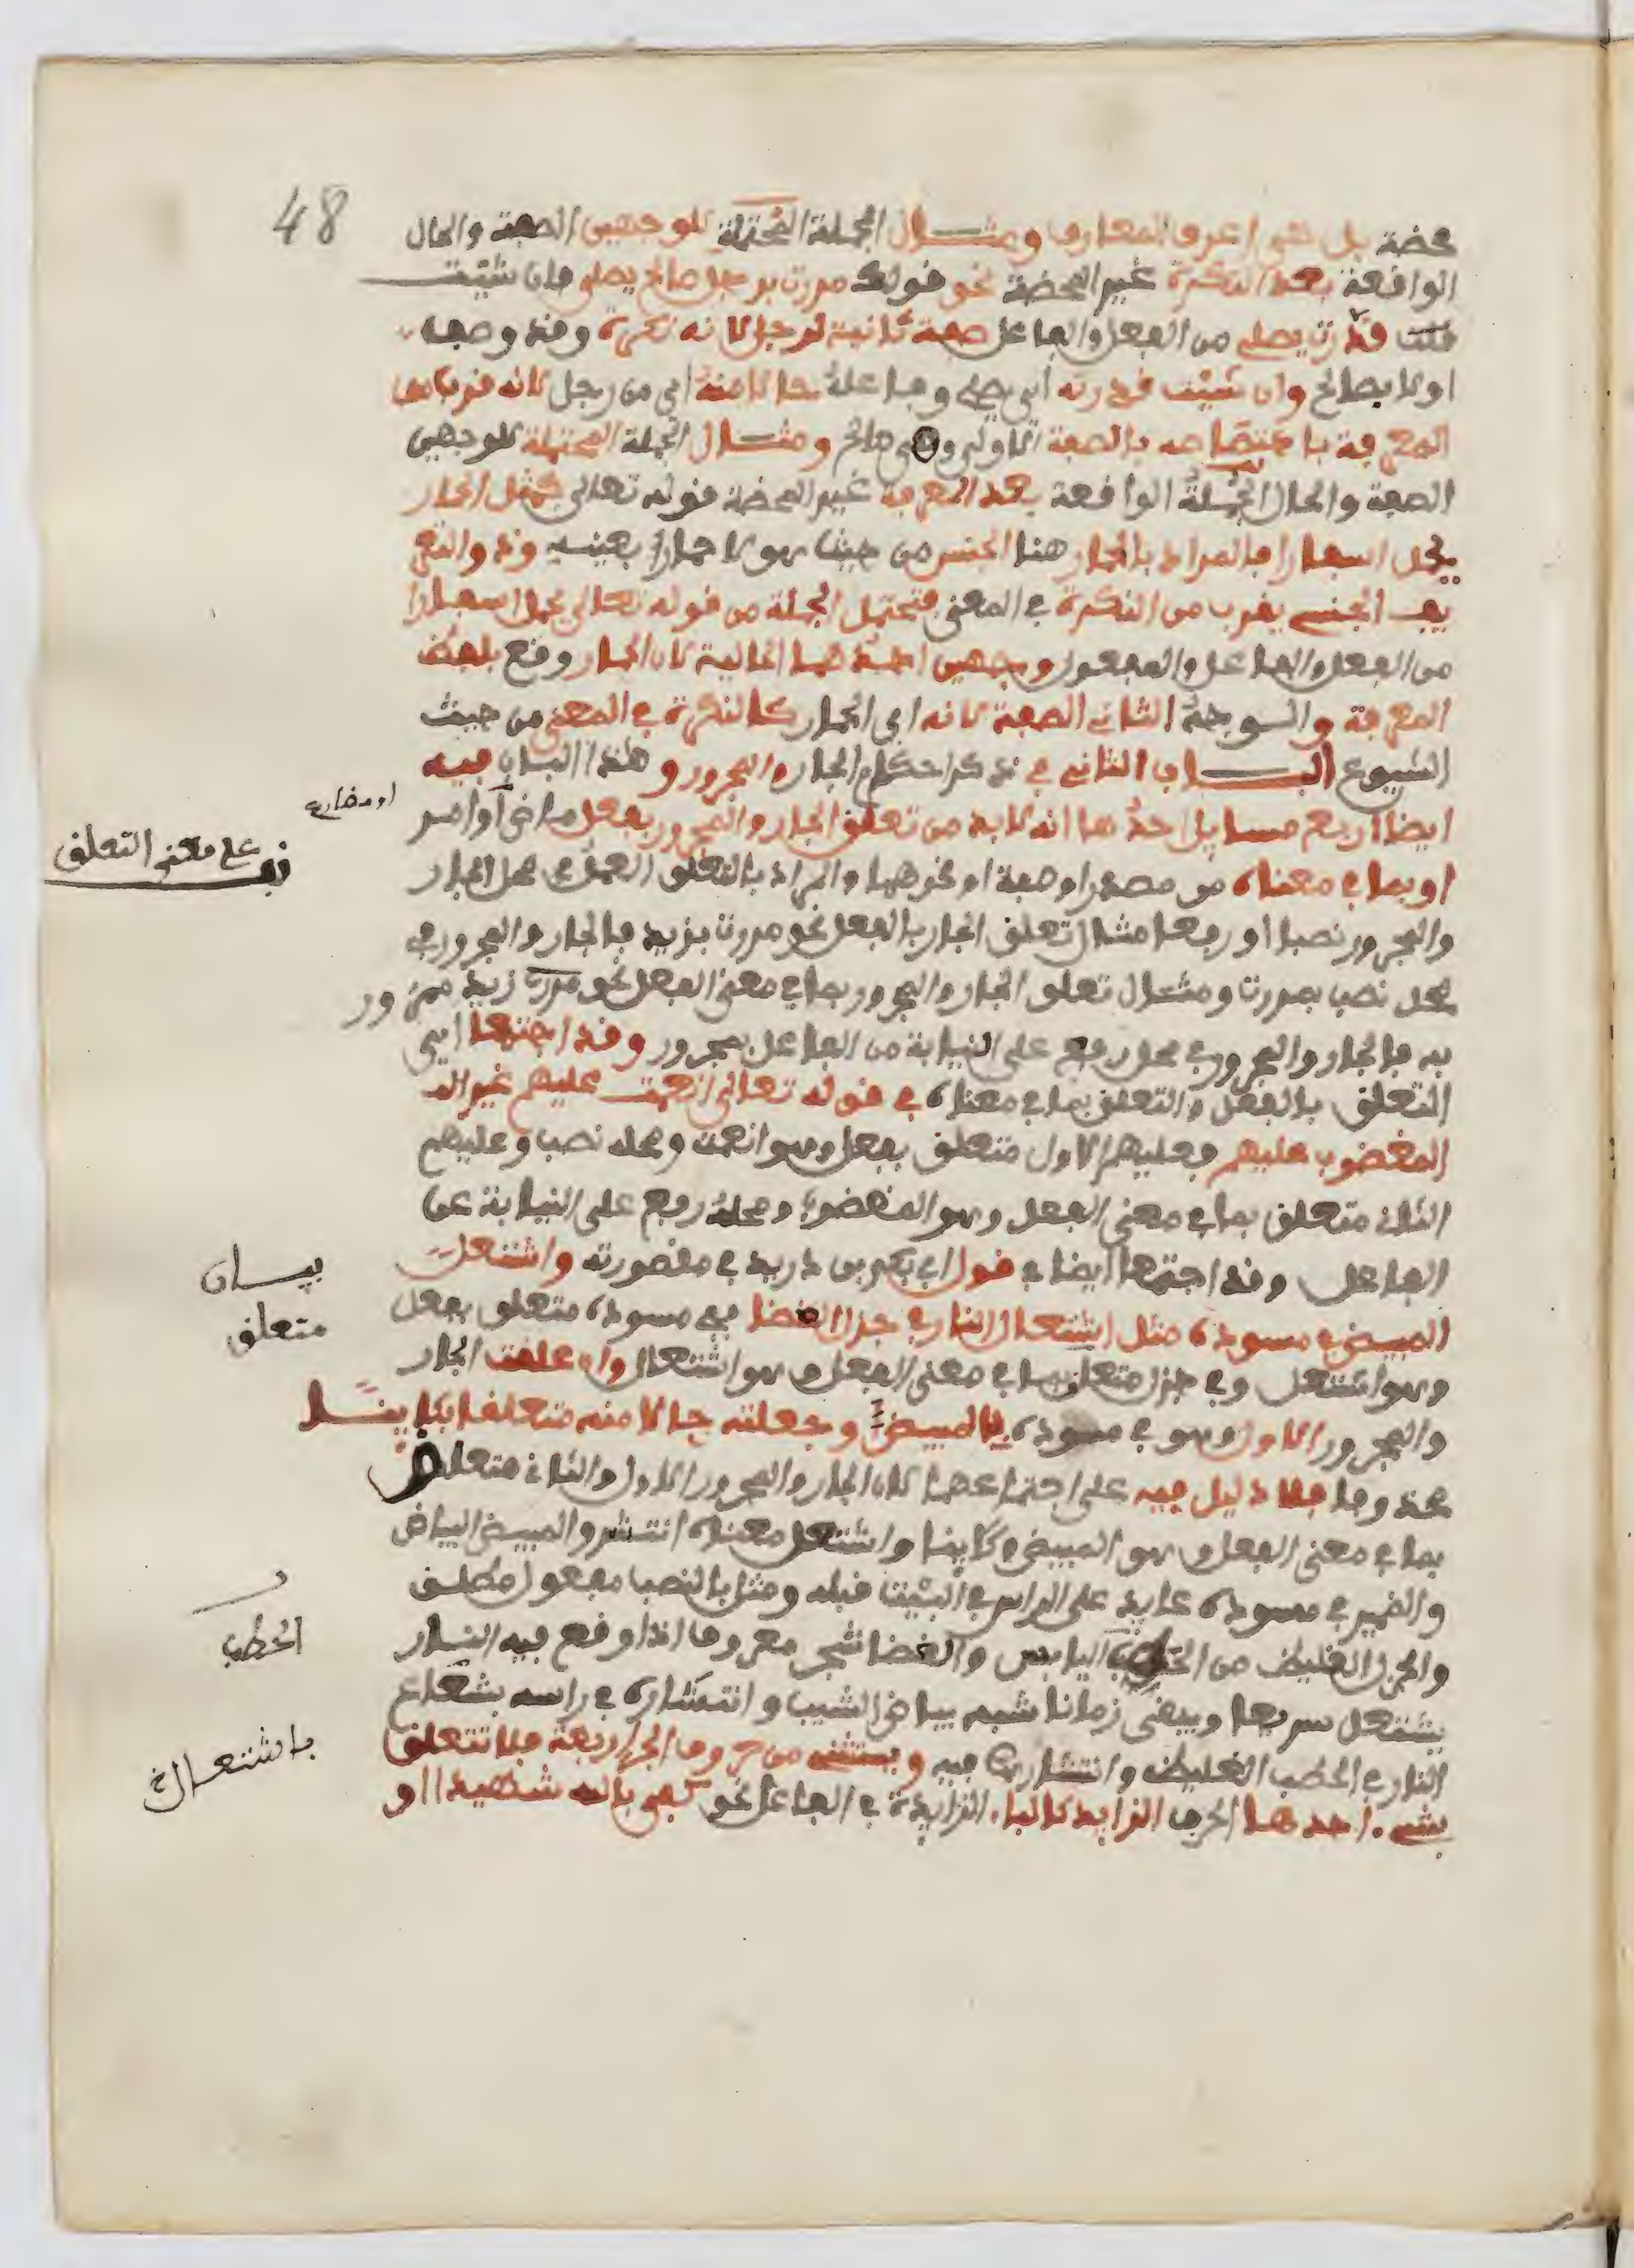 48
محضة بل هي اعرف المعارف ومثال الجملة المحتملة للوجهين الصفة والحال
الواقعة بعد النكرة غير المحضة نحو قولك مررت برجل صالح يصلي فان شئت
قلت قدرت يصلي من الفعل والفاعل صفة ثانية لرجل لانه نكرة وقد وصف
اولا بصالح وان شئت قدرته اي يصلي وفاعله حالا منه اي من رجل لانه قرب من
المعرفة باختصاصه بالصفة الاولى وهي صالح ومثال الجملة المحتملة للوجهين
الصفة والحال الجملة الواقعة بعد المعرفة غير المحضة قوله تعالى كمثل الحمار
يحمل اسفارا فالمراد بالحمار هنا الجنس من حيث هو لا حمارا بعينه وذو التعر
يف الجنسي يقرب من النكرة في المعنى فتحتمل الجملة من قوله تعالى يحمل اسفارا
من الفعل والفاعل والمفعول وجهين احدهما الحالية لان الحمار وقع بلفظ
المعرفة والوجه الثاني الصفة لانه اي الحمار كالنكرة في المعنى من حيث
الشيوع الباب الثاني في ذكر احكام الجار والمجرور وهذا الباب فيه
ايضا اربع مسايل احدها انه لا بد من تعلق الجار والمجرور بفعل ماض او امر
او مضارع
او بما في معناه من مصدر او صفة او نحوهما والمراد بالتعلق العمل في محل الجار
قف على معنى التعلق
والمجرور نصبا او رفعا مثال تعلق الجار بالفعل نحو مررت بزيد فالجار والمجرور في
محل نصب بمررت ومثال تعلق الجار والمجرور بما في معنى الفعل نحو مررت زيد ممرور
به فالجار والمجرور في محل رفع على النيابة من الفاعل بممرور وقد اجتمعا اي
التعلق بالفعل والتعلق بما في معناه في قوله تعالى انعمت عليهم غير ال
المغضوب عليهم فعليهم الاول متعلق بفعل وهو انعمت ومحله نصب وعليهم
الثاني متعلق بما في معنى الفعل وهو المغضوب ومحله رفع على النيابة عن
الفاعل وقد اجتمعا ايضا في قول ابي بكر بن دريد في مقصورته واشتعل
المبيض في مسوده مثل اشتعال النار في جزل الغضا ففي مسوده متعلق بفعل
وهو اشتعل وفي جزل متعلق بما في معنى الفعل وهو اشتعال وان علقت الجار
بيان
متعلق
والمجرور الاول وهو في مسوده بالمبيض وجعلته حالا منه متعلقا بكاينا
محذوفا فلا دليل فيه على اجتماعهما لان الجار والمجرور الاول والثاني متعلق
بما في معنى الفعل وهو المبيض وكاينا واشتعل معناه انتشر والمبيض البياض
والضمير في مسوده عايد على الراس في البيت قبله ومثل بالنصب مفعول مطلق
والجزل الغليظ من الحطب اليابس والغضا شجر معروف اذا وقع فيه النار
الحطب
يشتعل سريعا ويبقى زمانا شبه بياض الشيب وانتشاره في راسه بشعاع
النار في الحطب الغليظ وانتشارها فيه ويستثنى من حروف الجر اربعة فلا تتعلق
باشتعال
بشيء احدها الحرف الزايد كالباء الزايدة في الفاعل نحو كفى بالله شهيدا او